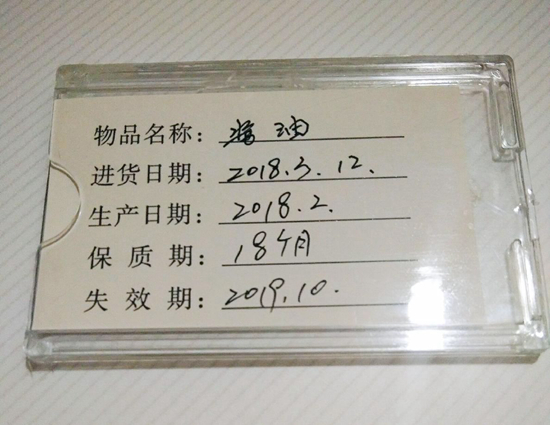 物品名称:
进货日期: 2018.3.12.
生产日期: 2018.2.
保质期: 18个月
失效期: 2019.10.